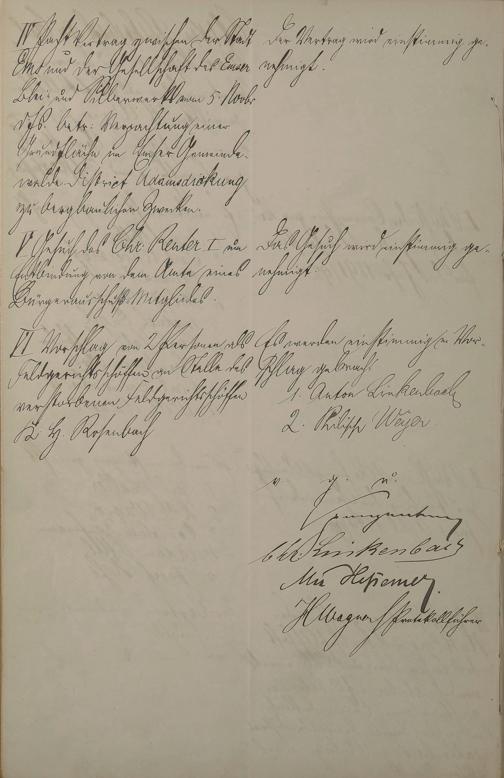 IV Pacht Vertrag zwischen der Stadt
Ems und der Gesellschaft des Emser
Blei- und Silberwerks vom 5. Novbr
ds. betr: Verpachtung einer
Grundfläche im Emser Gemeinde-
walde District Adamsdickung
zu bergbaulichen Zwecken.
Der Vertrag wird einstimmig ge-
nehmigt.
V Gesuch des Chr. Reuter I um
Entbindung von dem Amte eines
Bürgerausschuß Mitgliedes.
Das Gesuch wird einstimmig ge-
nehmigt.
VI Vorschlag von 2 Personen als
Feldgerichtsschöffen an Stelle des
verstorbenen Feldgerichtsschöffen
H. Rosenbach
Es werden einstimmig in Vor-
schlag gebracht:
1. Anton Linkenbach
2. Philipp Weyer
v. g. u.
Chr. Linkenbach
H Wagner Protokollführer